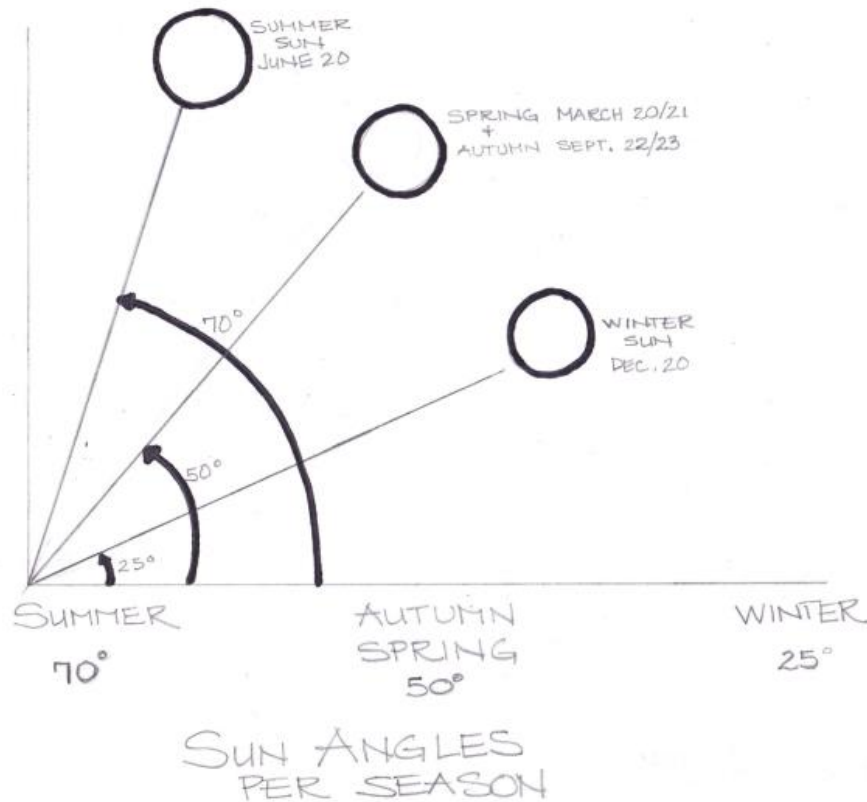 SUMMER
SUN
JUNE 20
SPRING MARCH 20/21
+
AUTUMN SEPT. 22/23
70°
WINTER
SUN
DEC. 20
50°
25°
SUMMER
70°
AUTUMN
SPRING
50°
WINTER
25°
SUN ANGLES
PER SEASON